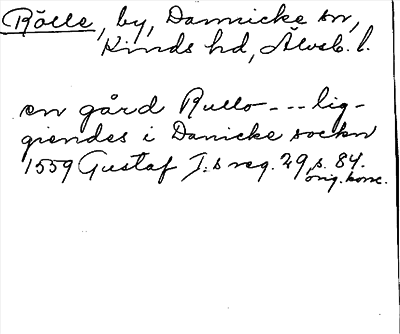 Rölle, by, Dannicke sn,
Kinds hd, Älvsb. l.
en gård Rullo - - - lig-
giendes i Danicke sockn
1559 Gustaf I:s reg. 29, s. 84.
orig. konc.